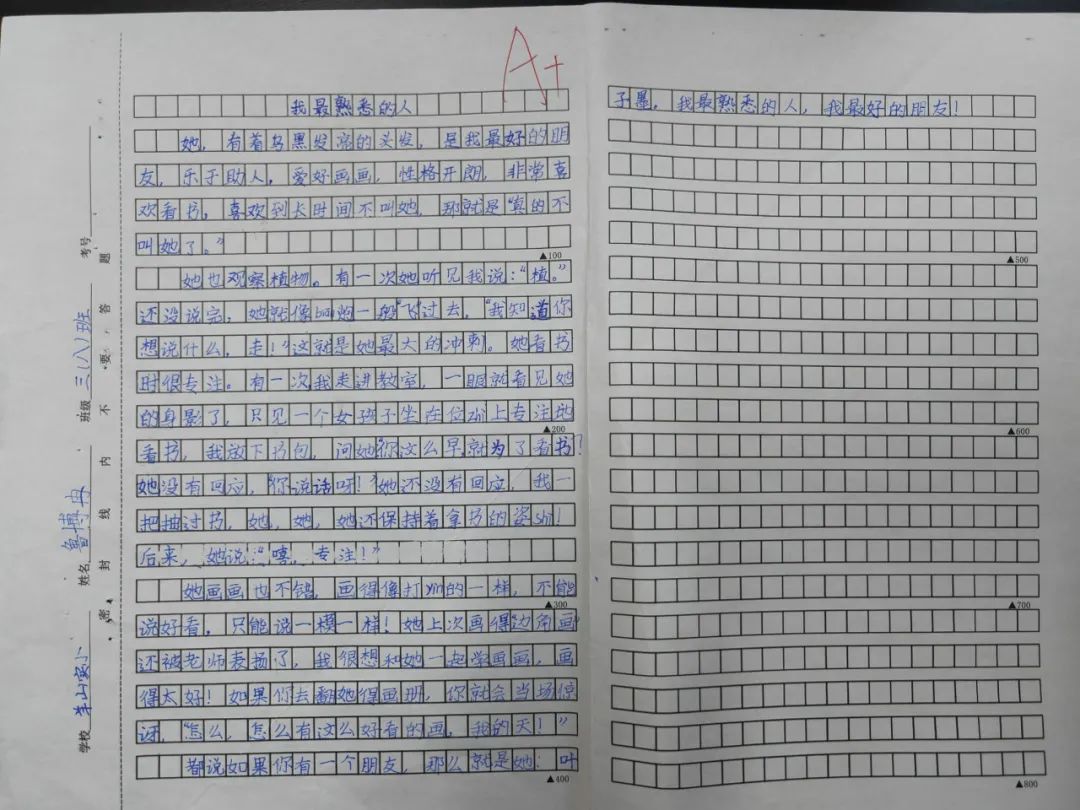 A+
我最熟悉的人
她，有着乌黑发亮的头发，是我最好的朋
友，乐于助人，爱好画画，性格开朗，非常喜
欢看书，喜欢到长时间不叫她，那就是“真的不
叫她了。”
▲100
她也观察植物。有一次她听见我说：“植。”
还没说完，她就像 炮一般“飞”过去，“我知道你
想说什么，走！”这就是她最大的冲刺。她看书
时很专注。有一次，我走进教室，一眼就看见她
的身影了，只见一个女孩子坐在位zi上专注地
▲200
看书，我放下书包，问她“你这么早，就为了看书？
她没有回应，“你说话呀！”她还没有回应，我一
把抽过书，她，她，她还保持着拿书的姿shi！
后来，她说：“嘻，专注！”
她画画也不错，画得像打yin的一样，不能
▲300
说好看，只能说一模一样！她上次画得“边角画”
还被老师表扬了，我很想和她一起学画画，画
得太好！如果你去翻她得画册，你就会当场惊
讶，“怎么，怎么有这么好看的画，我的天！”
都说如果你有一个朋友，那么就是她：叶
▲400
子墨，我最熟悉的人，我最好的朋友！
▲500
▲600
▲700
▲800
学校 李山实小
姓名 鲁博冉
班级 三(八)班
考号
密封线内不要答题